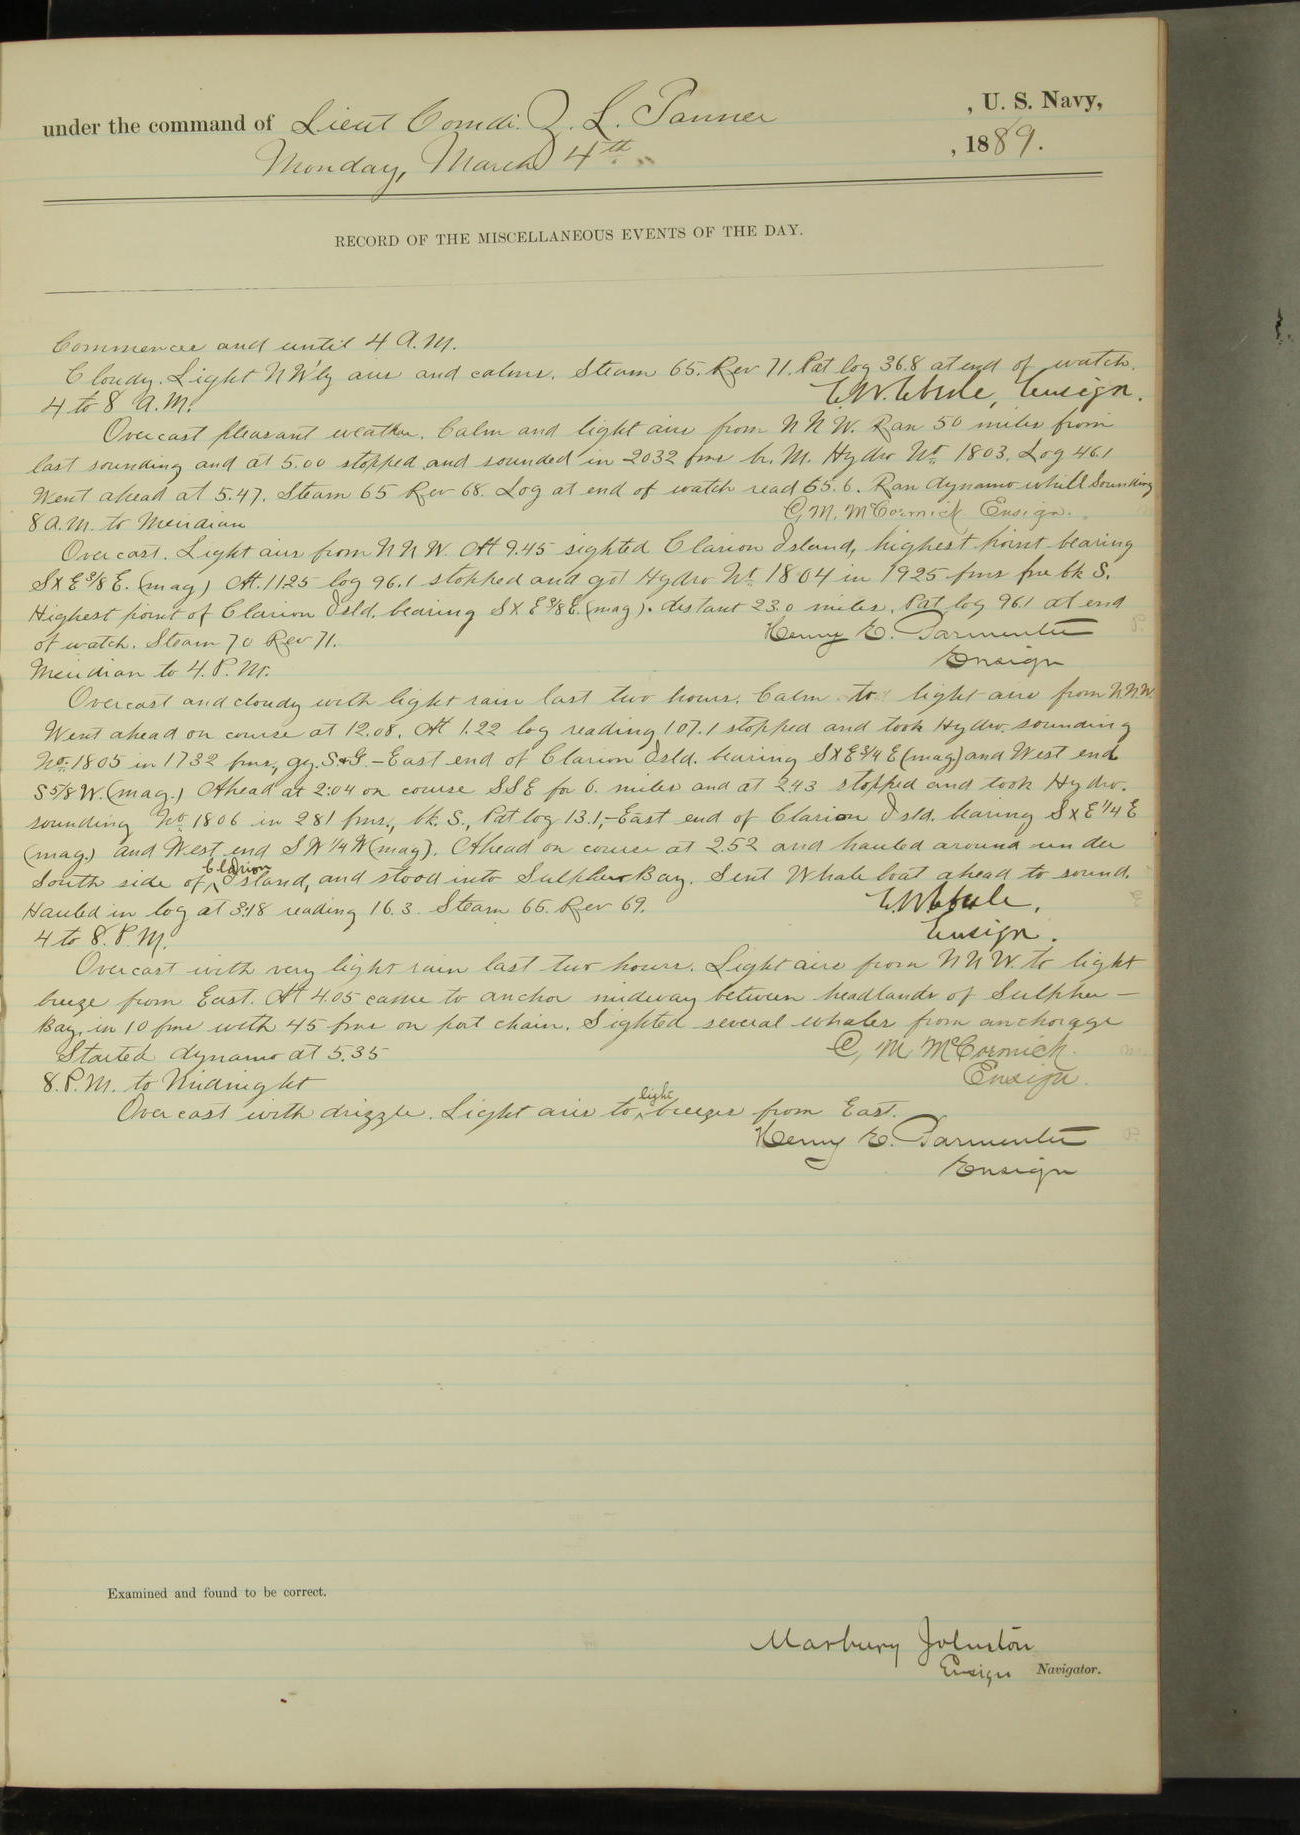 under the command of Lieut Comdr. Z. L. Tanner, U. S. Navy,
Monday, March 4th, 1889.
RECORD OF THE MISCELLANEOUS EVENTS OF THE DAY.
Commences and until 4 A.M.
Cloudy. Light NW'ly airs and calms. Steam 65. Rev 71. Pat log 36.8 at end of watch.
Ensign.
4 to 8 A.M.
Overcast pleasant weather. Calm and light airs from NNW. Ran 50 miles from
last sounding and at 5.00 stopped and sounded in 2032 fms br. M. Hydro No. 1803. Log 46.1
Went ahead at 5.47. Steam 65 Rev 68. Log at end of watch read 65.6. Ran dynamo whill sounding
C, M. McCormick Ensign.
8 A.M. to Meridian
Overcast. Light airs from NNW. At 9.45 sighted Clarion Island, highest point bearing
SxE3/8E. (mag) At. 1125 log 96.1 stopped and got Hydro No. 1804 in 1925 fms fne bk S.
Highest point of Clarion Isld. bearing SxE3/8E. (mag). distant 23.0 miles. Pat log 96.1 at end
of watch. Steam 70 Rev 71.
Henry E. Parmenter
Ensign
Meridian to 4. P.M.
Overcast and cloudy with light rain last two hours. Calm to light airs from N.N.W.
Went ahead on course at 12.08. At 1.22 log reading 107.1 stopped and took Hydro. sounding
No. 1805 in 1732 fms., gy. S&G. - East end of Clarion Isld. bearing SxE3/4E (mag) and West end
S5/8W. (mag.) Ahead at 2:04 on course SSE for 6. miles and at 2.43 stopped and took Hydro.
sounding No. 1806 in 281 fms., bk. S., Pat log 13.1, - East end of Clarion Isld. bearing SxE1/4E
(mag.) and West end SW1/4W (mag). Ahead on course at 2.52 and hauled around under
South side of Clarion Island, and stood into Sulphur Bay. Sent Whale boat ahead to sound.
Hauled in log at 3:18 reading 16.3. Steam 65. Rev 69.
Ensign.
4 to 8. P.M.
Overcast with very light rain last two hours. Light airs from NNW. to light
breeze from East. At 4.05 came to anchor midway between headlands of Sulphur -
Bay, in 10 fms with 45 fms on port chain. Sighted several whales from anchorage
Started dynamo at 5.35
C, M McCormick.
Ensign.
8. P.M. to Midnight
Overcast with drizzle. Light airs to light breezes from East.
Henry E. Parmenter
Ensign
Examined and found to be correct.
Marbury Johnston
Ensign Navigator.